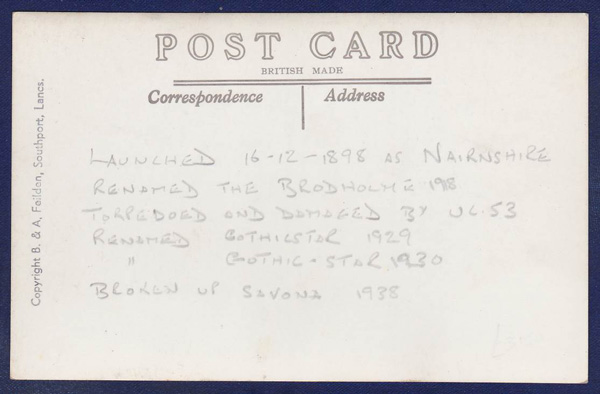 POST CARD
BRITISH MADE
Correspondence Address
Copyright B. & A. Feilden, Southport, Lancs.
LAUNCHED 16-12-1898 AS NAIRNSHIRE
RENAMED THE BRODHOLME 1918
TORPEDOED AND DAMAGED BY UC-53
RENAMED GOTHICSTAR 1929
" GOTHIC-STAR 1930
BROKEN UP SAVONA 1938